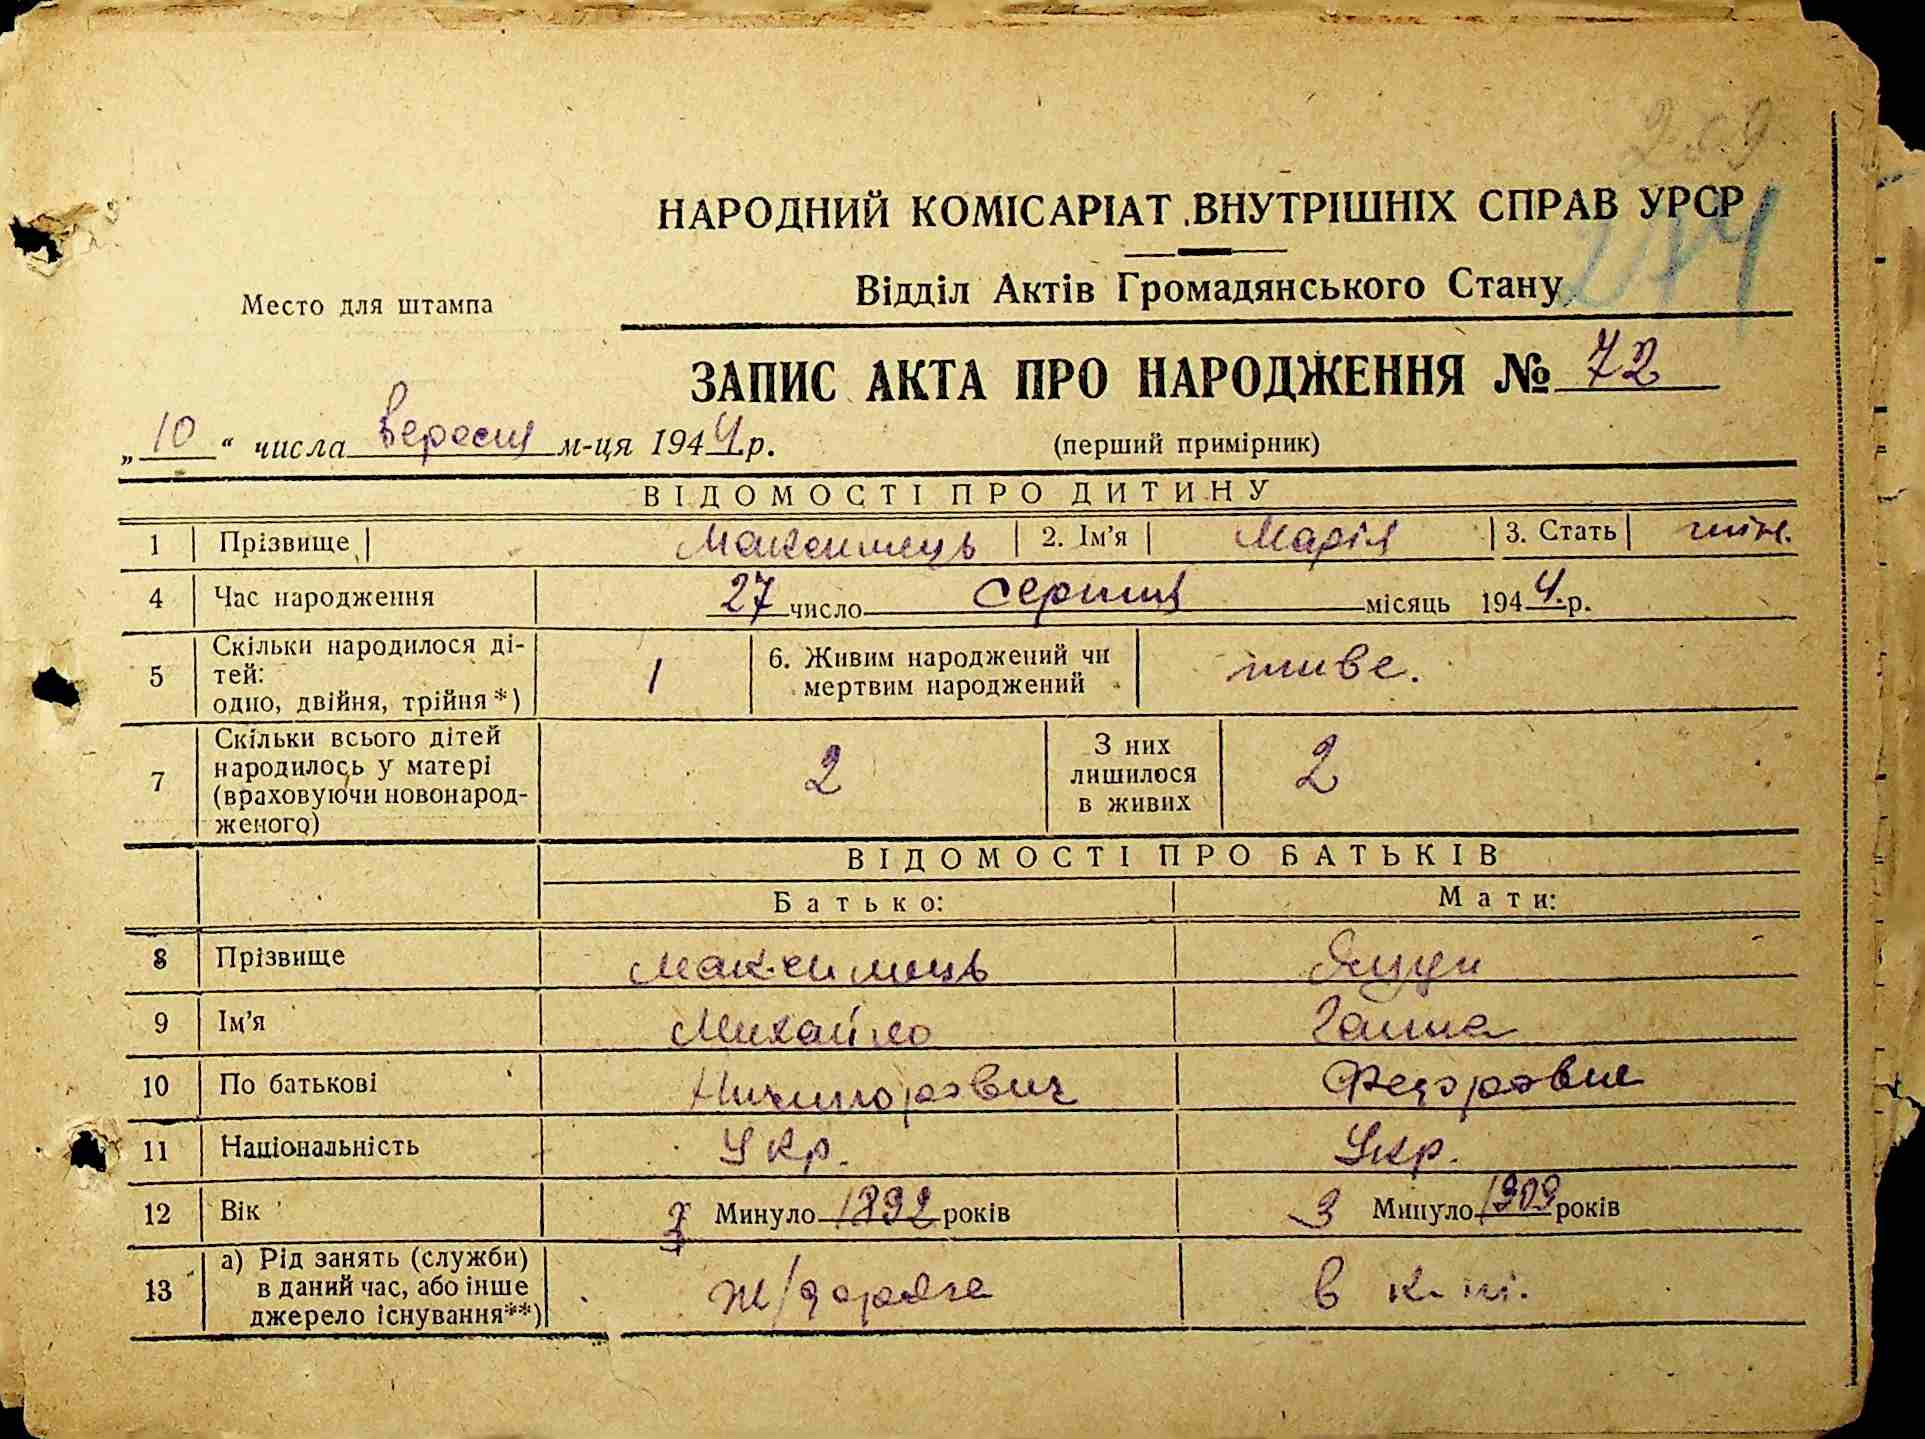 209
274
НАРОДНИЙ КОМІСАРІАТ ВНУТРІШНІХ СПРАВ УРСР
Відділ Актів Громадянського Стану
Место для штампа
ЗАПИС АКТА ПРО НАРОДЖЕННЯ № 72
„10“ числа вересня м-ця 1944 р. (перший примірник)
ВІДОМОСТІ ПРО ДИТИНУ
1 Прізвище Максимець 2. Ім'я Марія 3. Стать жін.
4 Час народження 27 число серпня місяць 1944 р.
5 Скільки народилося ді-
тей:
одно, двійня, трійня*) 1 6. Живим народжений чи
мертвим народжений живе.
7 Скільки всього дітей
народилось у матері
(враховуючи новонарод-
женого) 2 З них
лишилося
в живих 2
ВІДОМОСТІ ПРО БАТЬКІВ
Батько: Мати:
8 Прізвище Максимець
9 Ім'я Михайло Ганна
10 По батькові Ничипорович Федоровна
11 Національність Укр. Укр.
12 Вік З Минуло 1892 років З Минуло 1909 років
13 а) Рід занять (служби)
в даний час, або інше
джерело існування**) ж/дороге в к.